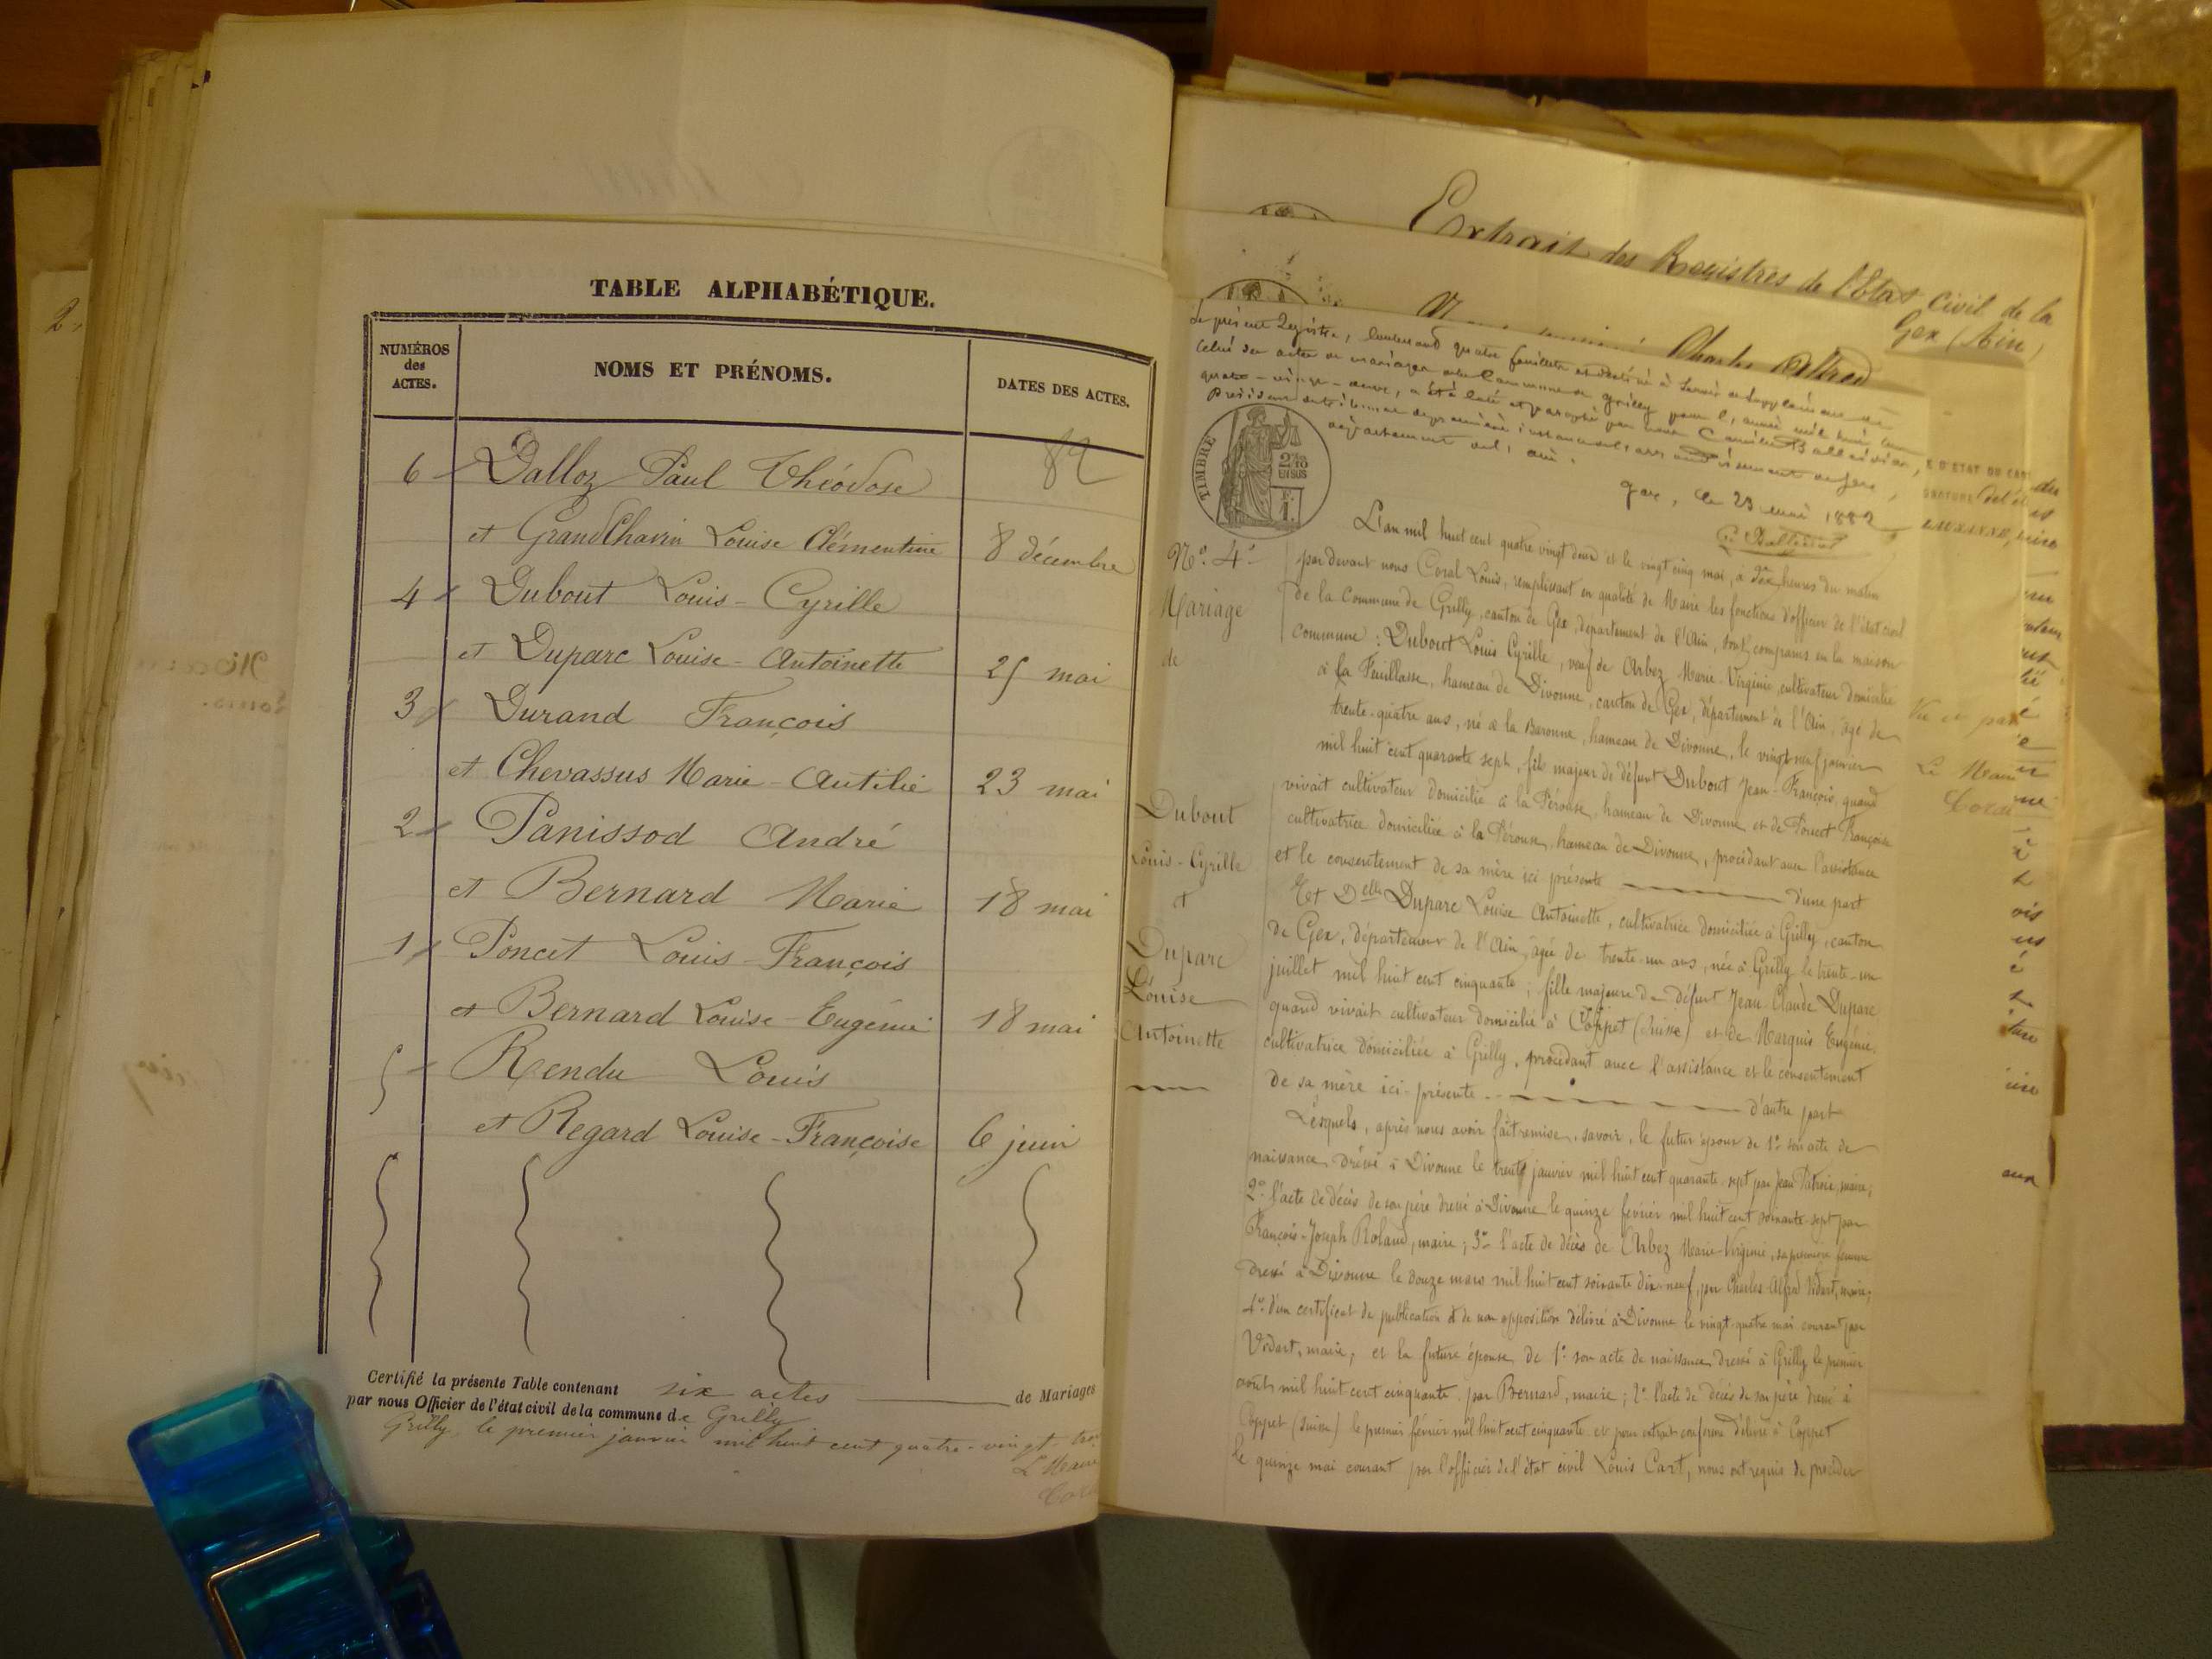 TABLE ALPHABÉTIQUE.
NUMÉROS des ACTES.
NOMS ET PRÉNOMS.
DATES DES ACTES.
82
6 Dalloz Paul Théodose
et GrandChavin Louise Clémentine 8 décembre
4 Dubout Louis-Cyrille
et Duparc Louise-Antoinette 25 mai
3 Durand François
et Chevassus Marie-Autilie 23 mai
2 Panissod André
et Bernard Marie 18 mai
1 Poncet Louis-François
et Bernard Louise-Eugénie 18 mai
5 Rendu Louis
et Regard Louise-Françoise 6 juin
Certifié la présente Table contenant six actes de Mariages
par nous Officier de l'état civil de la commune de Grilly.
Grilly, le premier janvier mil huit cent quatre-vingt-trois
Le Maire
Extrait des Registres de l'Etat Civil de la
Gex (Ain)
Charles Alfred
Le présent Registre, contenant quatre feuillets et destiné à servir de supplément
celui des actes de mariages de la Commune de Grilly pour l'année mil huit cent
quatre-vingt-deux, a été coté et paraphé par nous
Président du tribunal de première instance de l'arrondissement de Gex,
département de l'Ain.
Gex, le 23 mai 1882
TIMBRE
2/10 EN SUS
F. 1.
No. 4
Mariage
de
Dubout
Louis-Cyrille
et
Duparc
Louise
Antoinette
L'an mil huit cent quatre vingt deux et le vingt cinq mai, à dix heures du matin
par devant nous Coral Louis, remplissant en qualité de Maire les fonctions d'officier de l'état civil
de la Commune de Grilly, canton de Gex, département de l'Ain, sont comparus en la maison
commune : Dubout Louis Cyrille, veuf de Arbez Marie-Virginie, cultivateur domicilié
à la Feuillasse, hameau de Divonne, canton de Gex, département de l'Ain, âgé de
trente-quatre ans, né à la Baronne, hameau de Divonne, le vingt neuf janvier
mil huit cent quarante sept, fils majeur de défunt Dubout Jean-François, quand
vivait cultivateur domicilié à la Pérouse, hameau de Divonne et de Poncet Françoise
cultivatrice domiciliée à la Pérouse, hameau de Divonne, procédant avec l'assistance
et le consentement de sa mère ici présente d'une part
Et Delle Duparc Louise Antoinette, cultivatrice domiciliée à Grilly, canton
de Gex, département de l'Ain, âgée de trente-un ans, née à Grilly le trente-un
juillet mil huit cent cinquante ; fille majeure de défunt Jean-Claude Duparc
quand vivait cultivateur domicilié à Coppet (Suisse) et de Marquis Eugénie,
cultivatrice domiciliée à Grilly, procédant avec l'assistance et le consentement
de sa mère ici-présente d'autre part
Lesquels, après nous avoir fait remise, savoir, le futur époux de 1° son acte de
naissance dressé à Divonne le trente janvier mil huit cent quarante-sept par Jean Patroix, maire ;
2° l'acte de décès de son père dressé à Divonne le quinze février mil huit cent soixante-sept par
François-Joseph Roland, maire ; 3° l'acte de décès de Arbez Marie-Virginie, sa première femme
dressé à Divonne le douze mars mil huit cent soixante dix-neuf, par Charles Alfred Vidart, maire ;
4° d'un certificat de publication et de non opposition délivré à Divonne le vingt-quatre mai courant par
Vidart, maire, et la future épouse de 1° son acte de naissance dressé à Grilly le premier
août mil huit cent cinquante par Bernard, maire ; 2° l'acte de décès de son père dressé à
Coppet (Suisse) le premier février mil huit cent cinquante et pour extrait conforme délivré à Coppet
le quinze mai courant par l'officier de l'état civil Louis Cart, nous ont requis de procéder
Vu et par
Le Maire